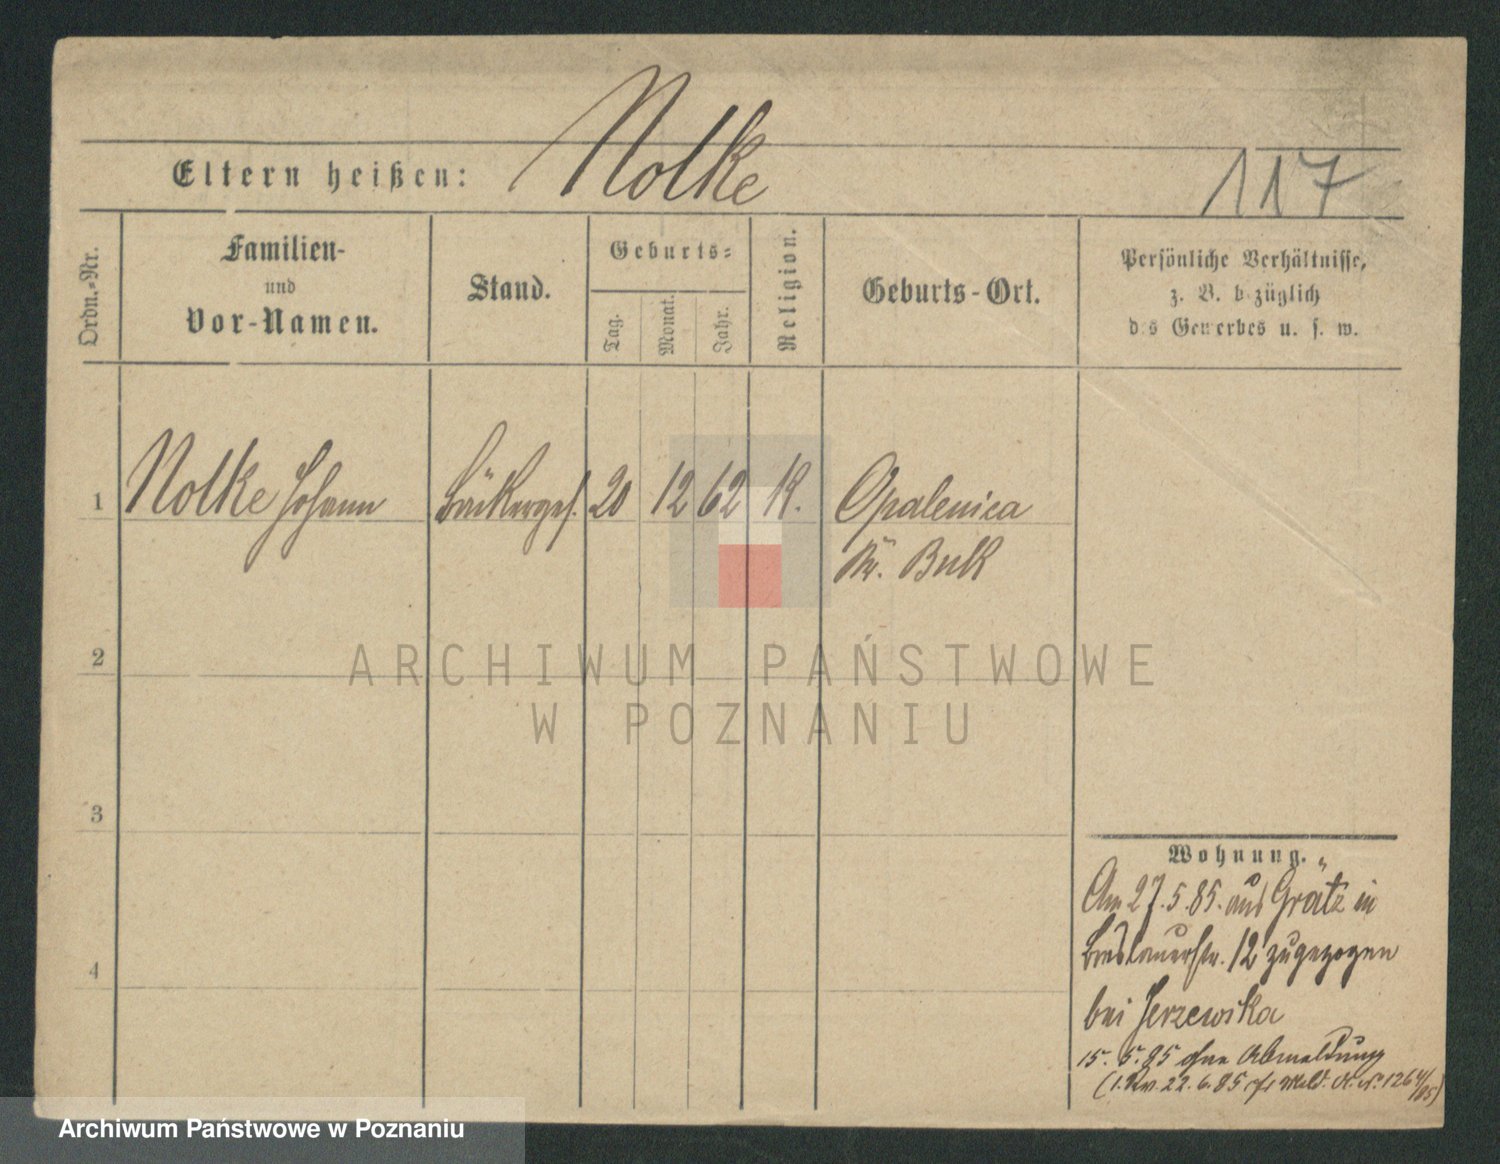 Nolke
Eltern heißen:
117
Ordn.-Nr.
Familien-
und
Vor-Namen.
Stand.
Geburts-
Tag.
Monat.
Jahr.
Religion.
Geburts-Ort.
Persönliche Verhältnisse,
z. B. bezüglich
des Gewerbes u. s. w.
1 Nolke Johann Bäckerges. 20 12 62 K. Opalenica
Kr. Buk
2
3
4
Wohnung.
Am 27.5.85. aus Grätz in
Breslauerstr. 12 zugezogen
bei Jerzewska
15. 5. 85 ohne Abmeldung
22.6.85
ARCHIWUM PAŃSTWOWE
W POZNANIU
Archiwum Państwowe w Poznaniu